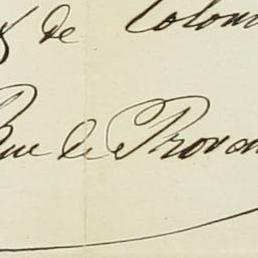 de Colom
Rue de Proven